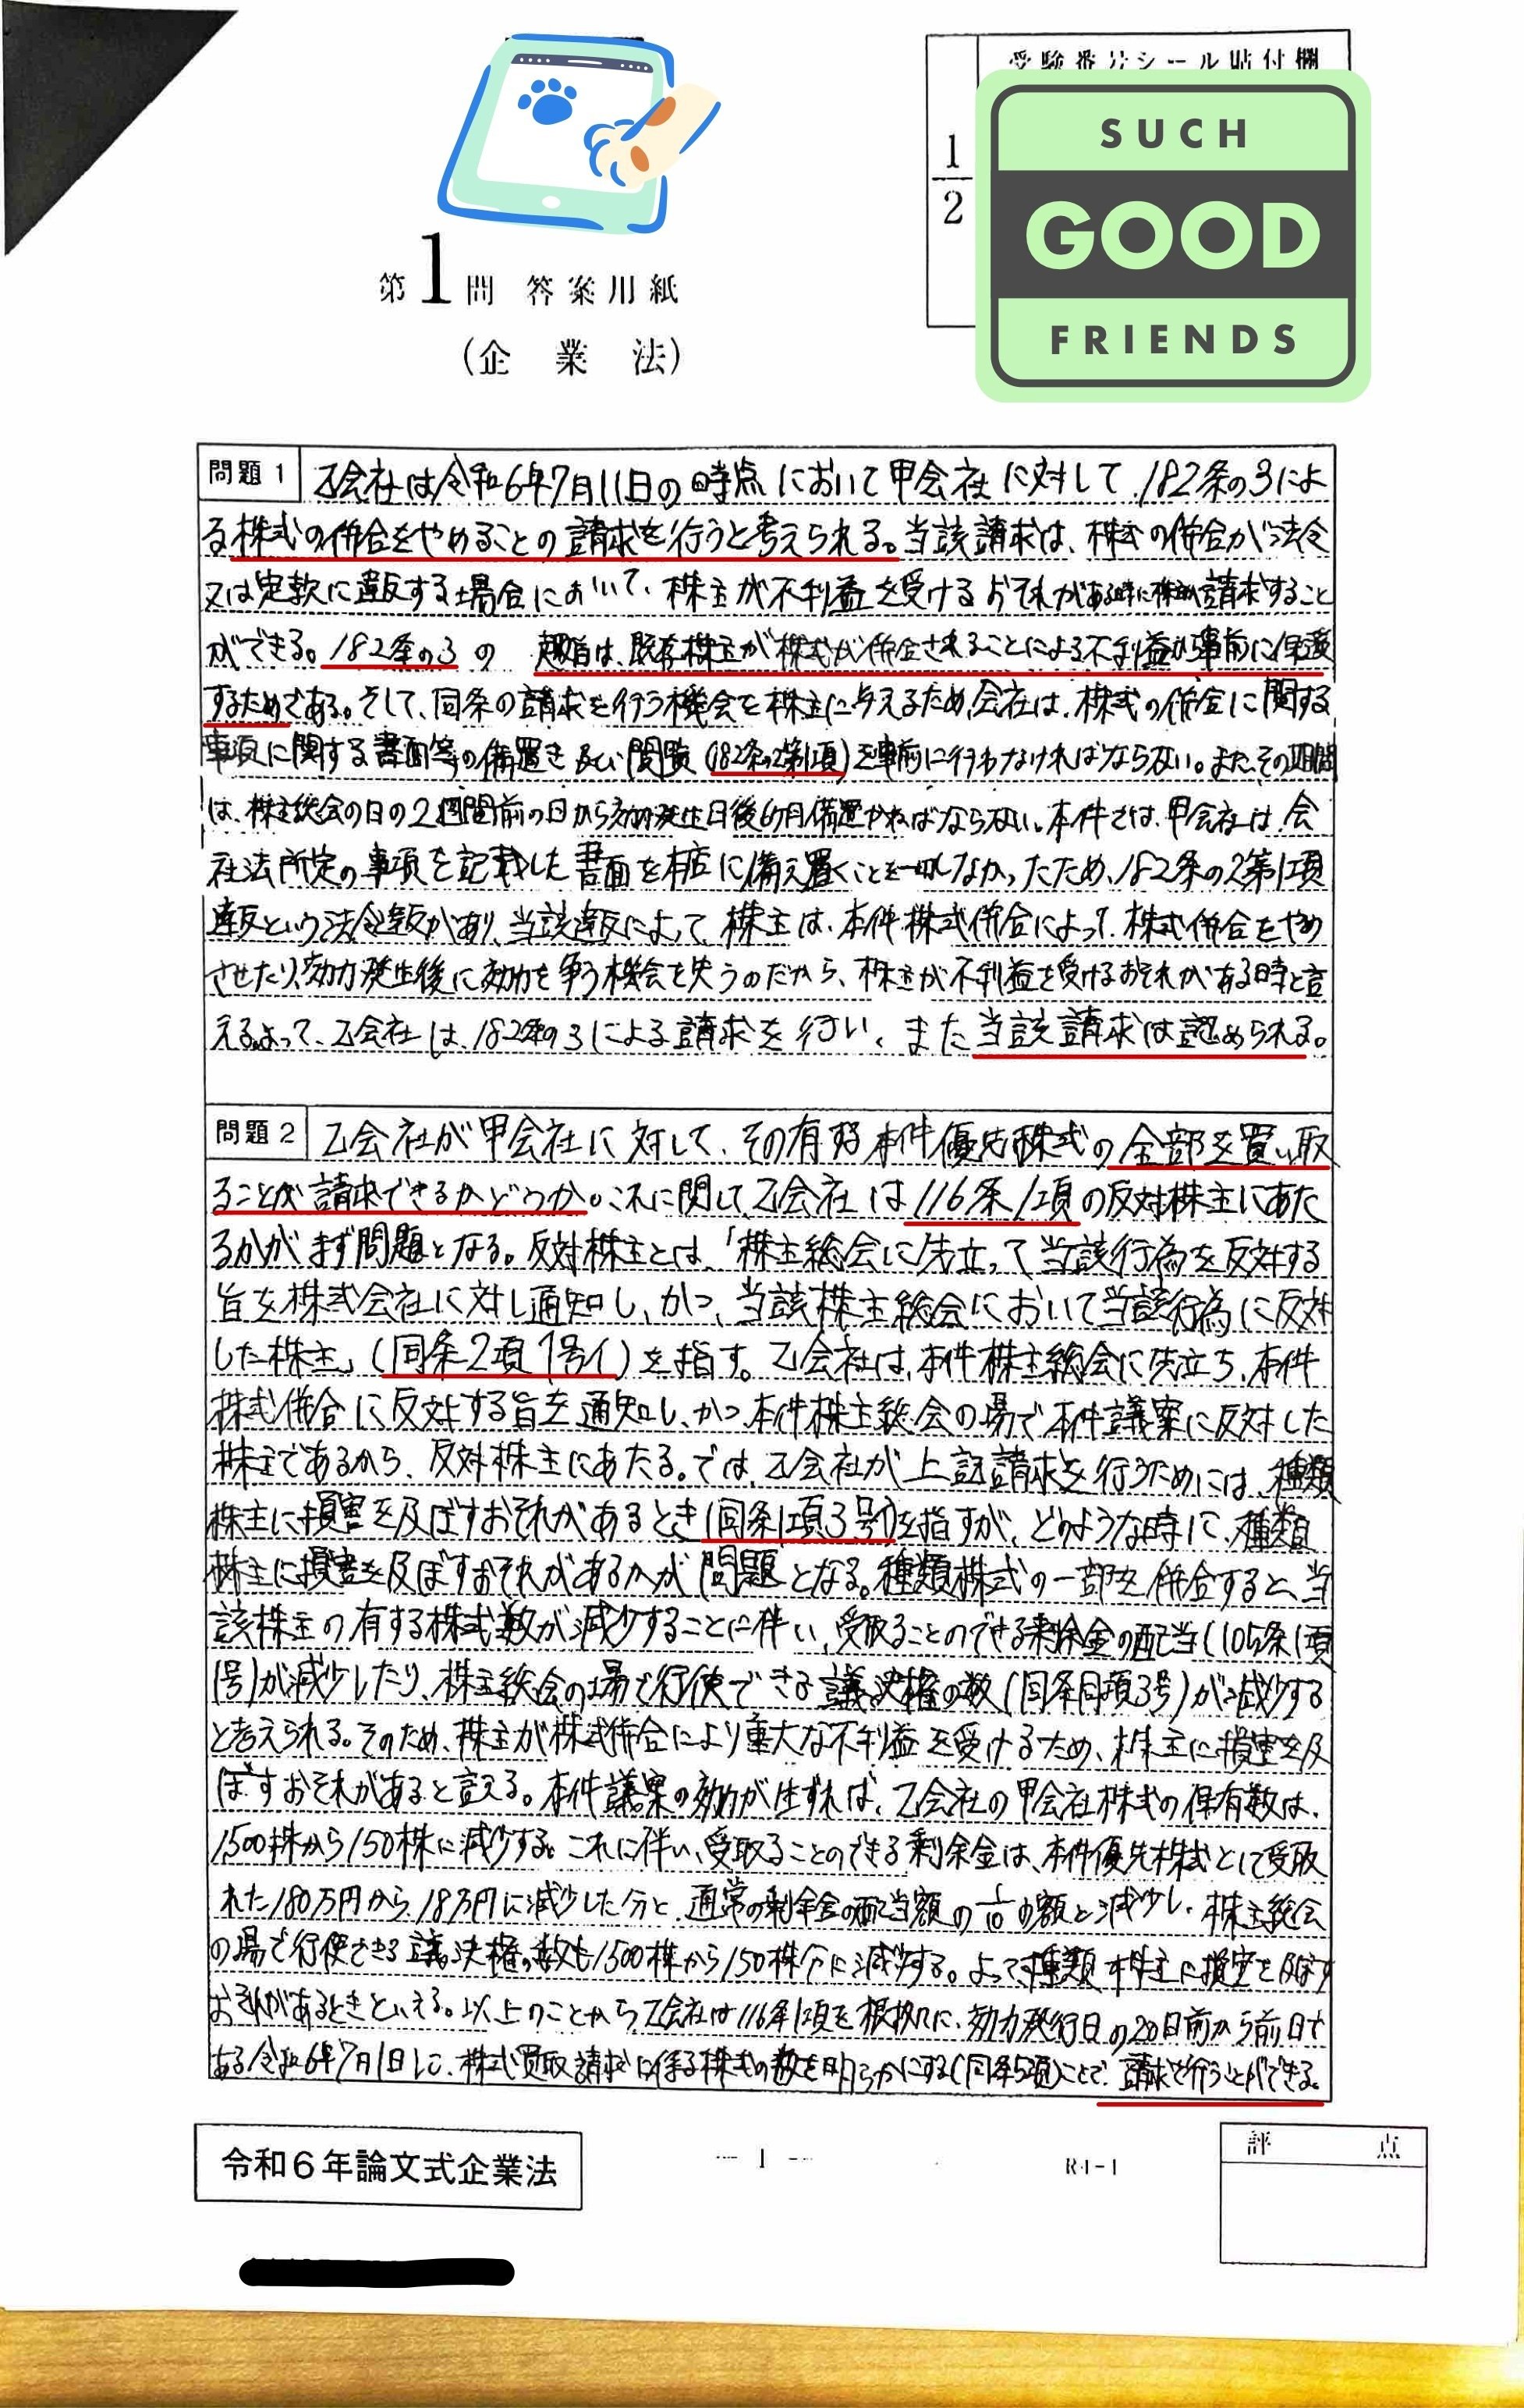 受験番号シール貼付欄
1
2
SUCH
GOOD
FRIENDS
第1問 答案用紙
(企業法)
問題1 乙会社は令和6年7月11日の時点において甲会社に対して182条の3によ
る株式の併合をやめることの請求を行うと考えられる。当該請求は、株式の併合が法令
又は定款に違反する場合において、株主が不利益を受けるおそれがある時に株主が請求すること
ができる。182条の3の 趣旨は、既存株主が株式が併合されることによる不利益から事前に保護
するためである。そして、同条の請求を行う機会を株主に与えるため、会社は、株式の併合に関する
事項に関する書面等の備置き及び閲覧(182条の2第1項)を事前に行わなければならない。また、その期間
は、株主総会の日の2週間前の日から効力発生日後6ケ月備置かねばならない。本件では、甲会社は、会
社法所定の事項を記載した書面を本店に備え置くことを一切しなかったため、182条の2第1項
違反という法令違反があり、当該違反によって、株主は、本件株式併合によって、株式併合をやめ
させたり、効力発生後に効力を争う機会を失うのだから、株主が不利益を受けるおそれがある時と言
える。よって、乙会社は、182条の3による請求を行い、また当該請求は認められる。
問題2 乙会社が甲会社に対して、その有する本件優先株式の全部を買い取
ることが請求できるかどうか。これに関して、乙会社は116条1項の反対株主にあた
るかがまず問題となる。反対株主とは、「株主総会に先立って当該行為を反対する
旨を株式会社に対し通知し、かつ、当該株主総会において当該行為に反対
した株主」(同条2項1号イ)を指す。乙会社は、本件株主総会に先立ち、本件
株式併合に反対する旨を通知し、かつ、本件株主総会の場で本件議案に反対した
株主であるから、反対株主にあたる。では、乙会社が上記請求を行うためには、種類
株主に損害を及ぼすおそれがあるとき(同条1項3号)を指すが、どのような時に、種類
株主に損害を及ぼすおそれがあるかが問題となる。種類株式の一部を併合すると、当
該株主の有する株式数が減少することに伴い、受取ることのできる剰余金の配当(105条1項
1号)が減少したり、株主総会の場で行使できる議決権の数(同条同項3号)が減少する
と考えられる。そのため、株主が株式併合により重大な不利益を受けるため、株主に損害を及
ぼすおそれがあると言える。本件議案の効力が生ずれば、乙会社の甲会社株式の保有数は、
1500株から150株に減少する。これに伴い、受取ることのできる剰余金は、本件優先株式として受取
れた180万円から、18万円に減少した分と、通常の剰余金の配当額の1/10の額と減少し、株主総会
の場で行使できる議決権の数も1500株から150株分に減少する。よって、種類株主に損害を及ぼす
おそれがあるときといえる。以上のことから乙会社は116条1項を根拠に、効力発行日の20日前から前日で
ある令和6年7月1日に、株式買取請求に係る株式の数を明らかにする(同条5項)ことで、請求を行うことができる。
令和6年論文式企業法
— 1 —
R4-1
評点